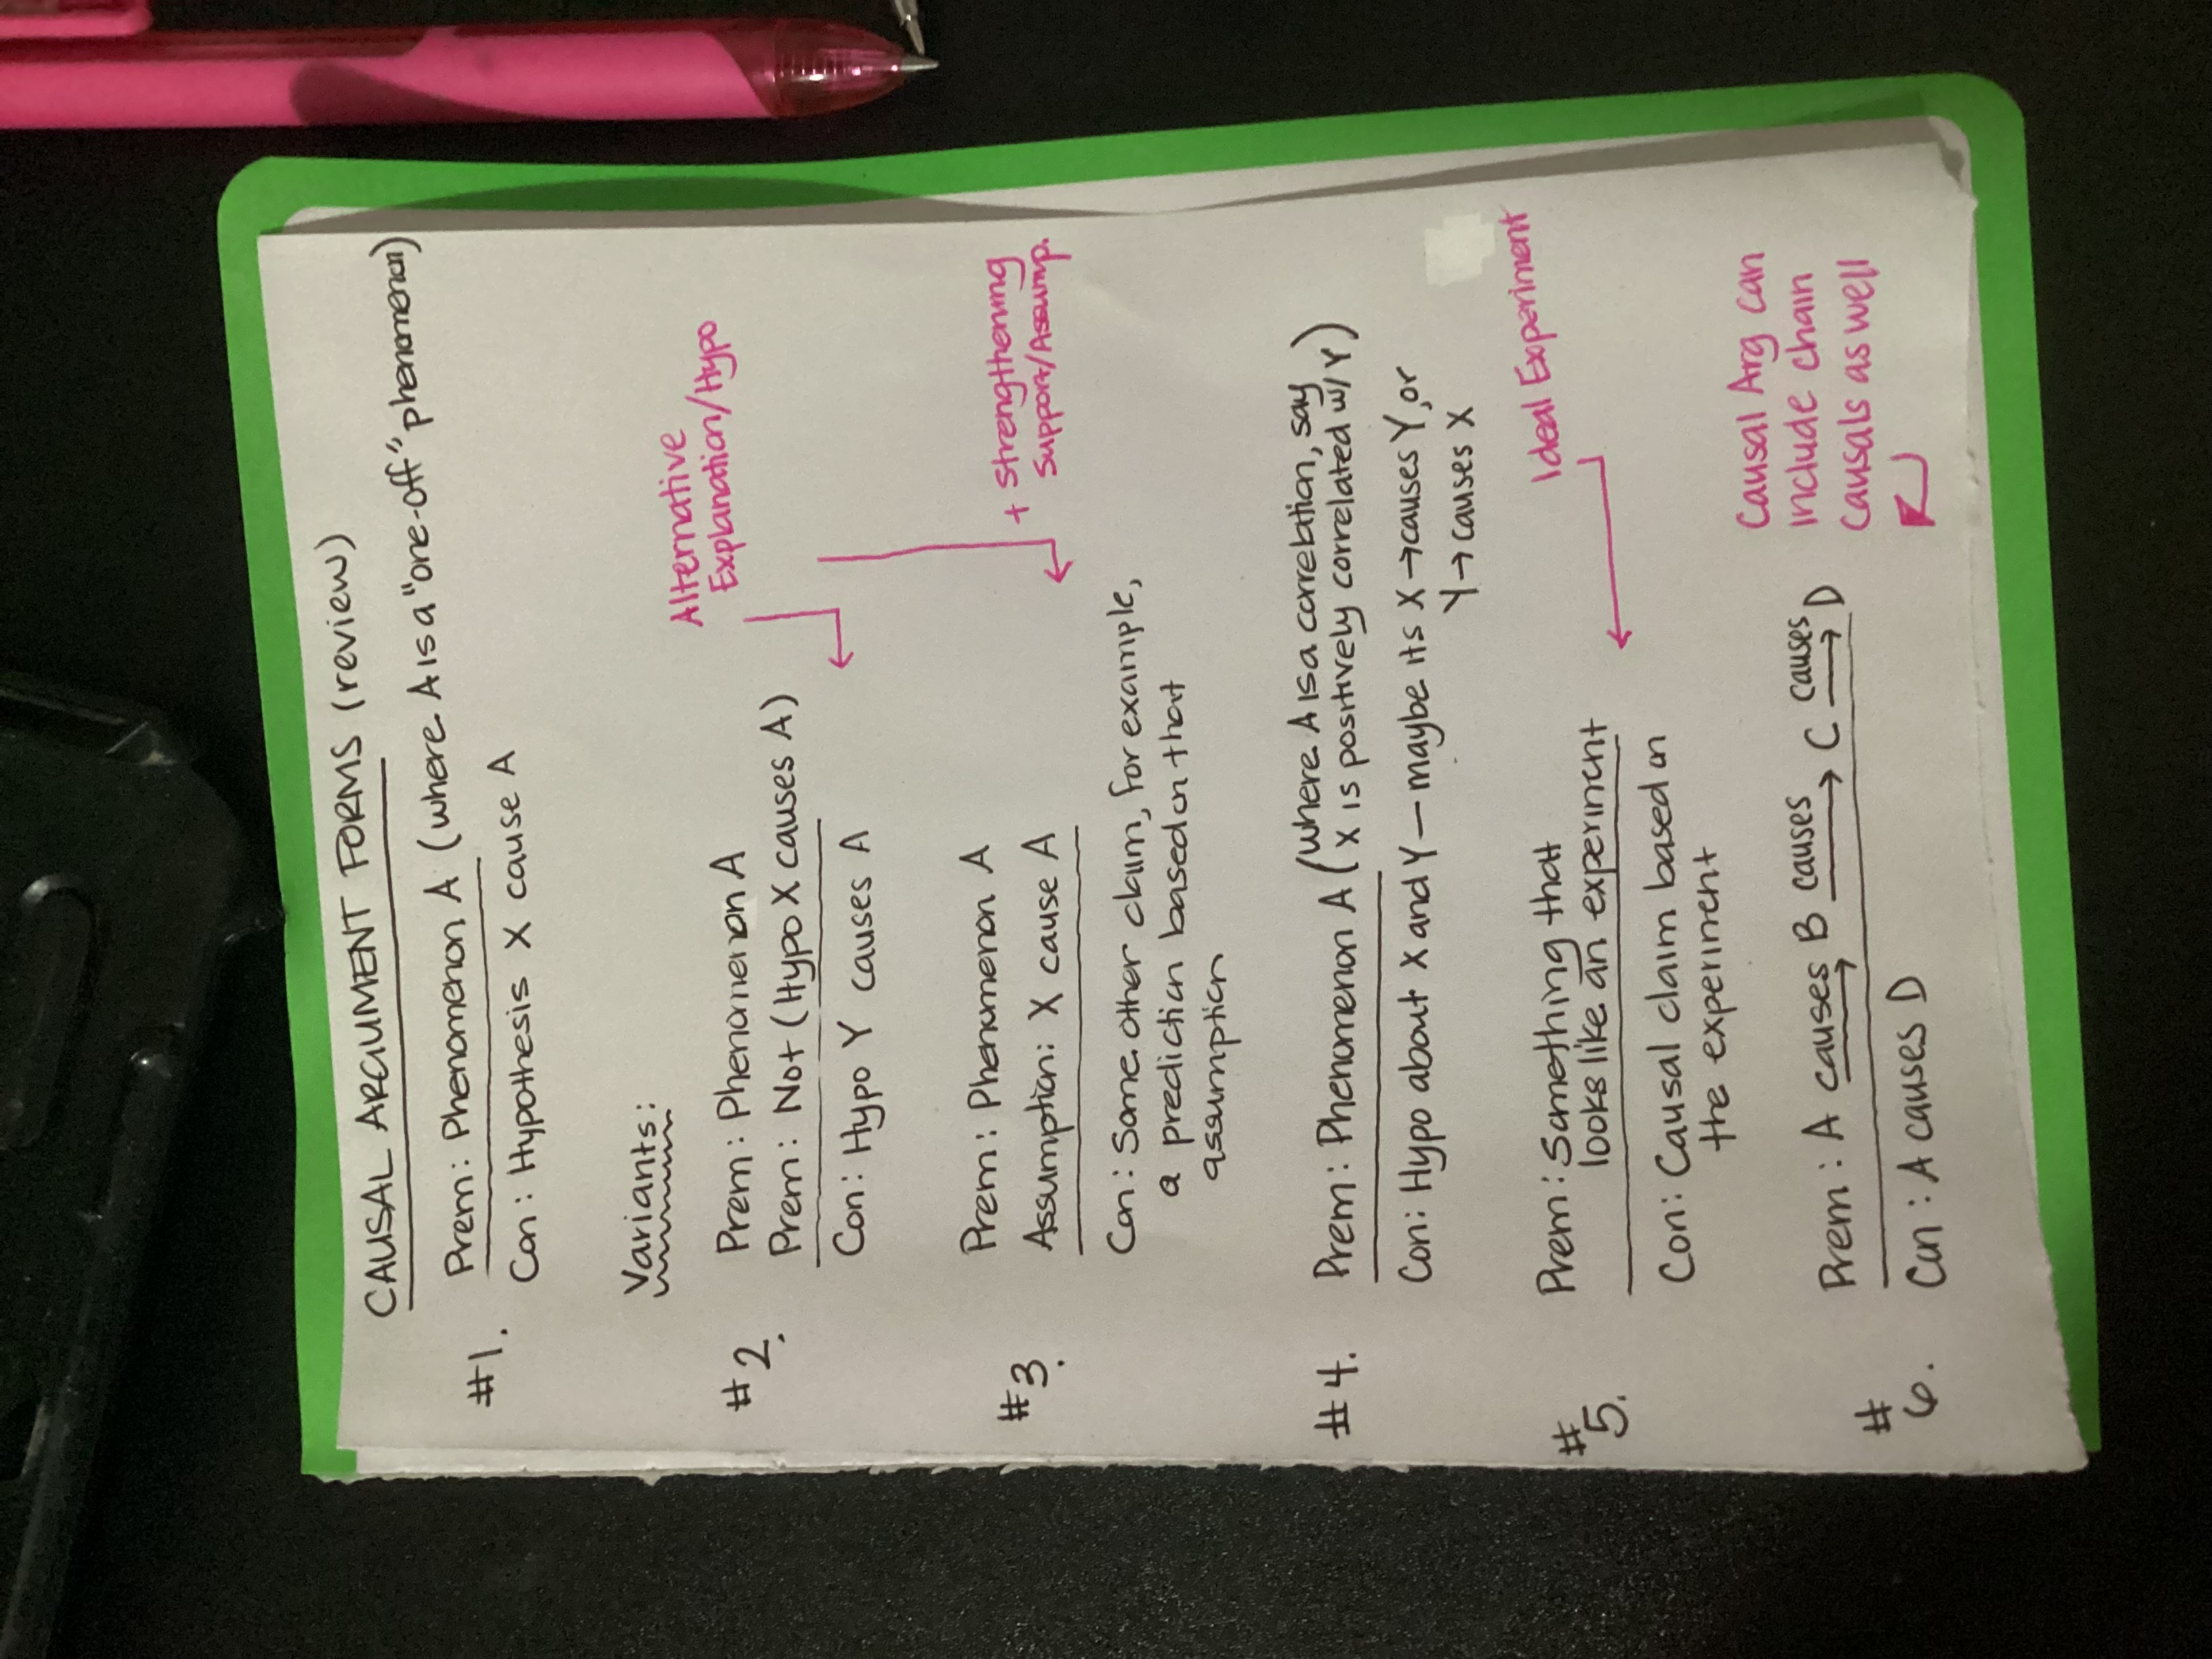 CAUSAL ARGUMENT FORMS (review)
#1. Prem: Phenomenon A (where A is a "one-off" phenomenon)
Con: Hypothesis X cause A
Variants:
Alternative
Explanation/Hypo
#2. Prem: Phenomenon A
Prem: Not (Hypo X causes A)
Con: Hypo Y causes A
+ strengthening
support/Assump.
#3. Prem: Phenomenon A
Assumption: X cause A
Con: Some other claim, for example,
a prediction based on that
assumption
#4. Prem: Phenomenon A (where A is a correlation, say
X is positively correlated w/ Y)
Con: Hypo about X and Y — maybe its X → causes Y, or
Y → causes X
Ideal Experiment
#5. Prem: Something that
looks like an experiment
Con: Causal claim based on
the experiment
Causal Arg can
include chain
causals as well
#6. Prem: A causes B causes C causes D
Con: A causes D